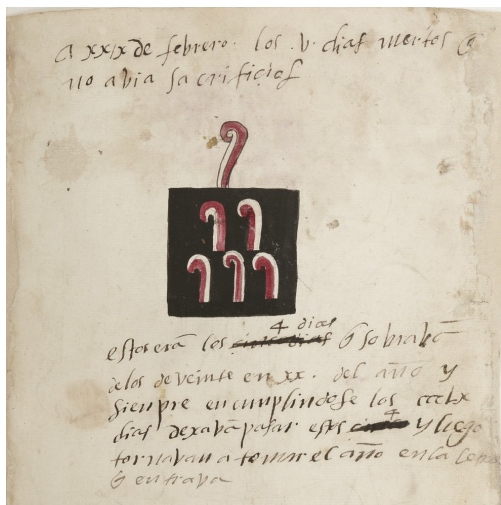 a xxix de febrero. los .v. dias muertos q̃
no avia sacrificios
4 dias
estos eran los cinco dias q̃ sobravã
delos de veinte en xx. del año y
sienpre en cunpliendose los ccclx
dias dexavã pasar estos 4 y luego
tornavan a tomar el año en la
q̃ entrava